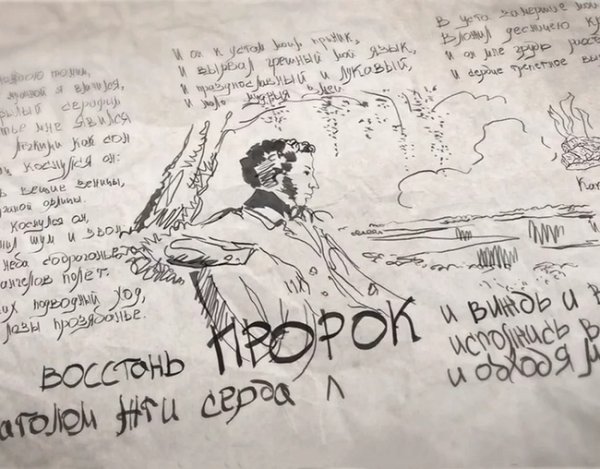 томим,
я влачился,
рылый серафим
тье мне явился
легкими как сон
коснулся он:
сь вещие зеницы,
ганной орлицы.
коснулся он,
нил шум и звон
неба содроганье
ангелов полет.
их подводный ход,
лозы прозябанье.
И он к устам моим приник,
И вырвал грешный мой язык,
И празднословный и лукавый,
И жало мудрыя змеи
В уста замершие мои
Вложил десницею к
И он мне грудь рассе
И сердце трепетное вы
восстань ПРОРОК
и виждь и в
исполнись в
и обходя м
аголом жги серда